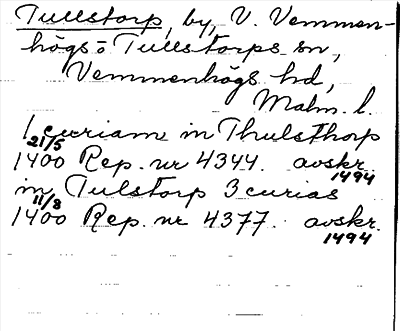 Tullstorp, by, V. Vemmen-
högs o Tullstorps sn,
Vemmenhögs hd,
Malm. l.
1 curiam in Thulsthorp
21/5
1400 Rep. nr 4344. avskr.
1494
in Tulstorp 3 curias
11/8
1400 Rep. nr 4377. avskr.
1494